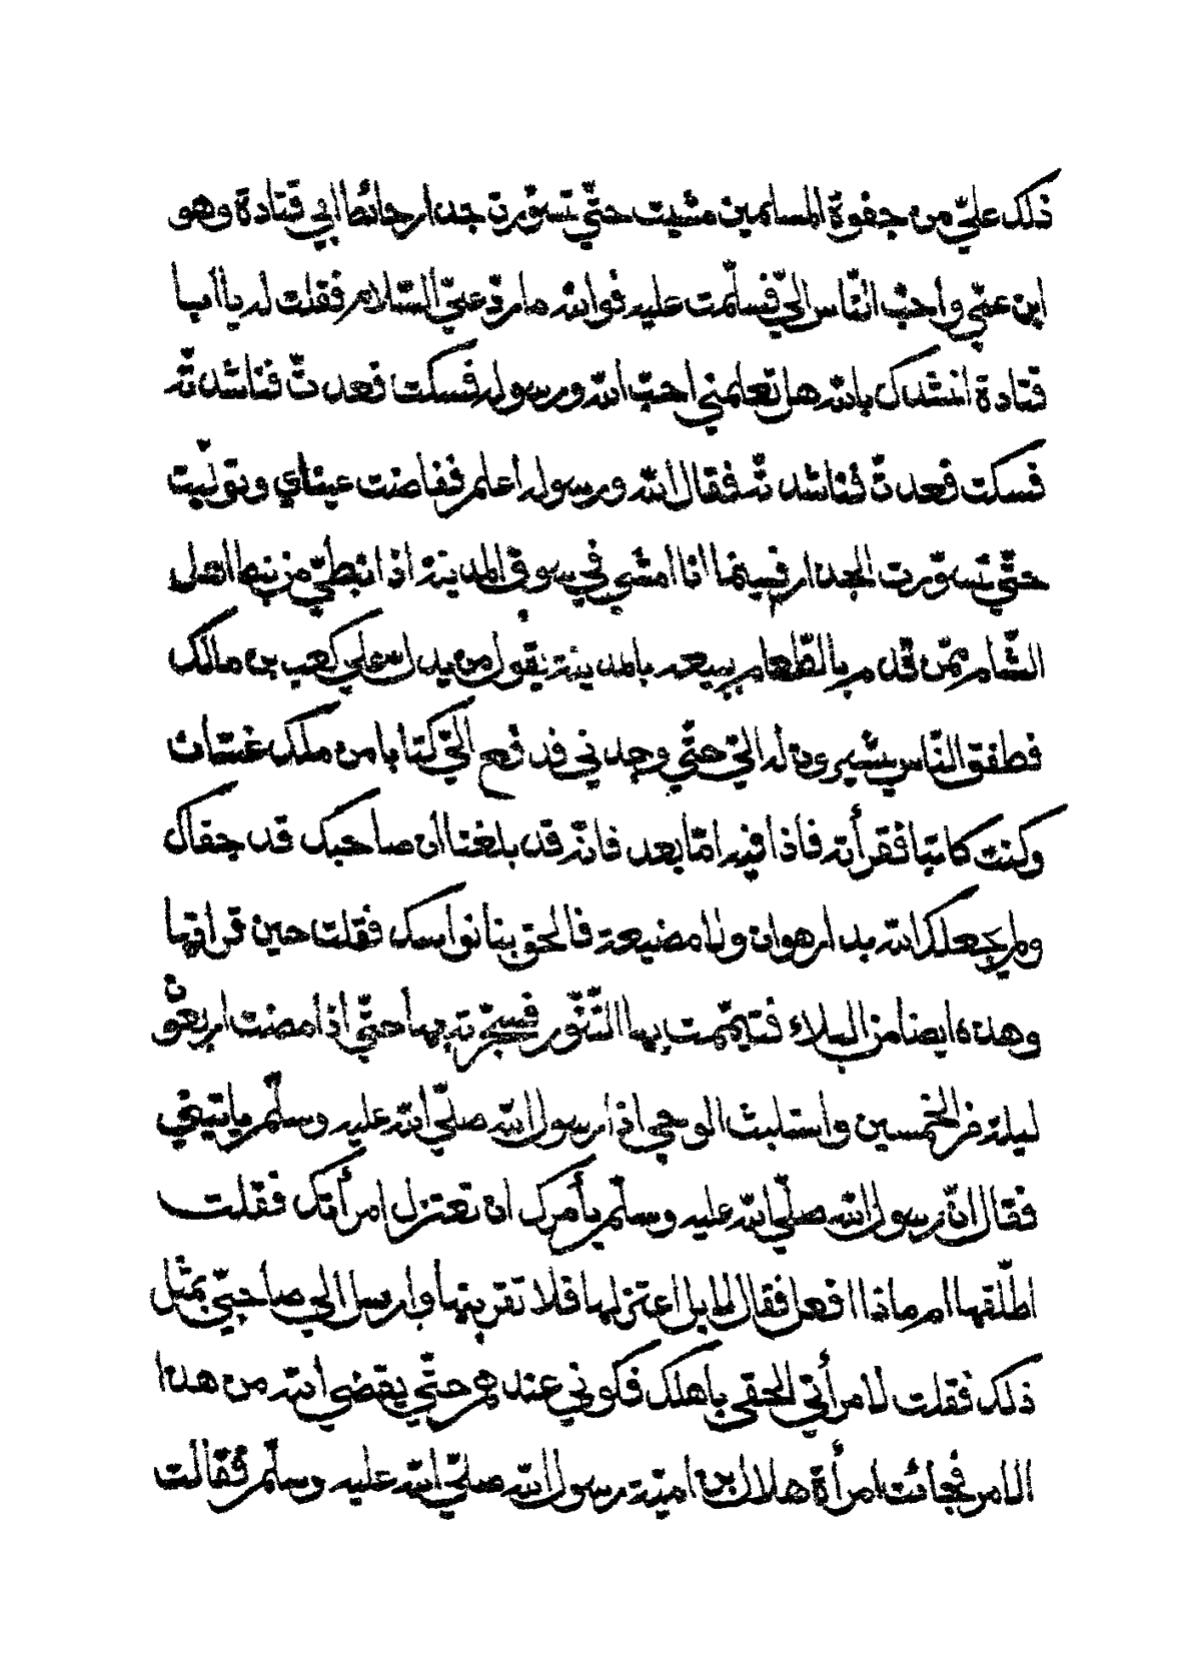 ذلك عليّ من جفوة المسلمين مشيت حتّي تسوّرت جدار حائط ابي قتادة وهو
ابن عمّي وأحبّ النّاس اليّ فسلّمت عليه فوالله ما ردّ عليّ السّلام فقلت له يا أبا
قتادة انشدك بالله هل تعلمني احبّ الله ورسوله فسكت فعدتّ فناشدتّه
فسكت فعدتّ فناشدتّه فقال الله ورسوله اعلم ففاضت عيناي وتولّيت
حتّي تسوّرت الجدار فبينما انا امشي في سوق المدينة اذا نبطيّ من نبط اهل
الشّام ممّن قدم بالطّعام يبيعه بالمدينة يقول من يدل علي كعب بن مالك
فطفق النّاس يشيرون له اليّ حتّي وجدني فدفع اليّ كتابا من ملك غسّان
وكنت كاتبا فقرأته فاذا فيه امّا بعد فانّه قد بلغنا ان صاحبك قد جفاك
ولم يجعلك الله بدار هوان ولا مضيعة فالحق بنا نواسك فقلت حين قراتها
وهذه ايضا من البلاء فتيمّمت بها التّنّور فسجّرته بها حتّي اذا مضت اربعون
ليلة من الخمسين واستلبث الوحي اذا رسول الله صلّي الله عليه وسلّم ياتيني
فقال انّ رسول الله صلّي الله عليه وسلّم يأمرك ان تعتزل امرأتك فقلت
اطلّقها ام ماذا افعل فقال لا بل اعتزلها فلا تقربنها وارسل الي صاحبيّ بمثل
ذلك فقلت لامرأتي الحقي باهلك فكوني عندهم حتّي يقضي الله من هذا
الامر فجائت امرأة هلال بن اميّة رسول الله صلّي الله عليه وسلّم فقالت